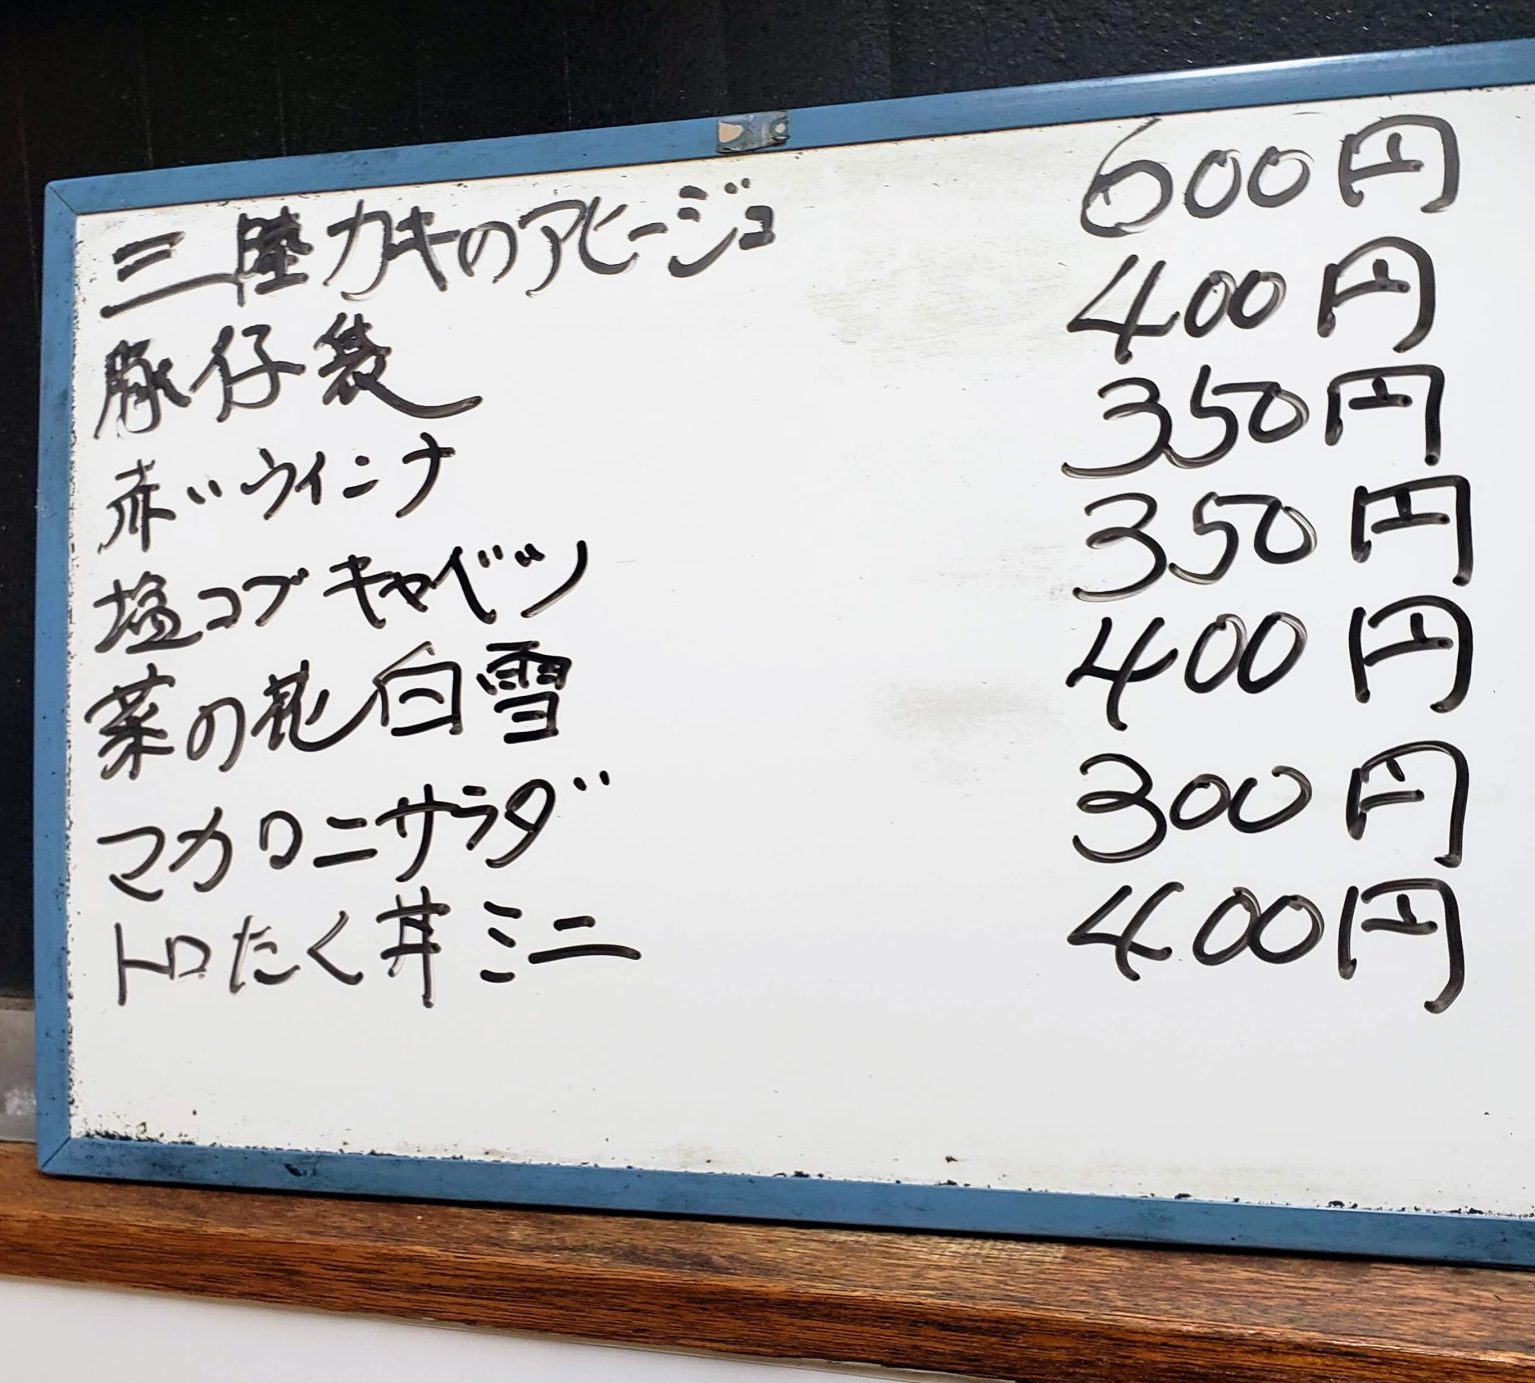 三陸カキのアヒージョ 600円
豚仔袋 400円
赤いウインナ 350円
塩コブキャベツ 350円
菜の花白雪 400円
マカロニサラダ 300円
トロたく丼ミニ 400円